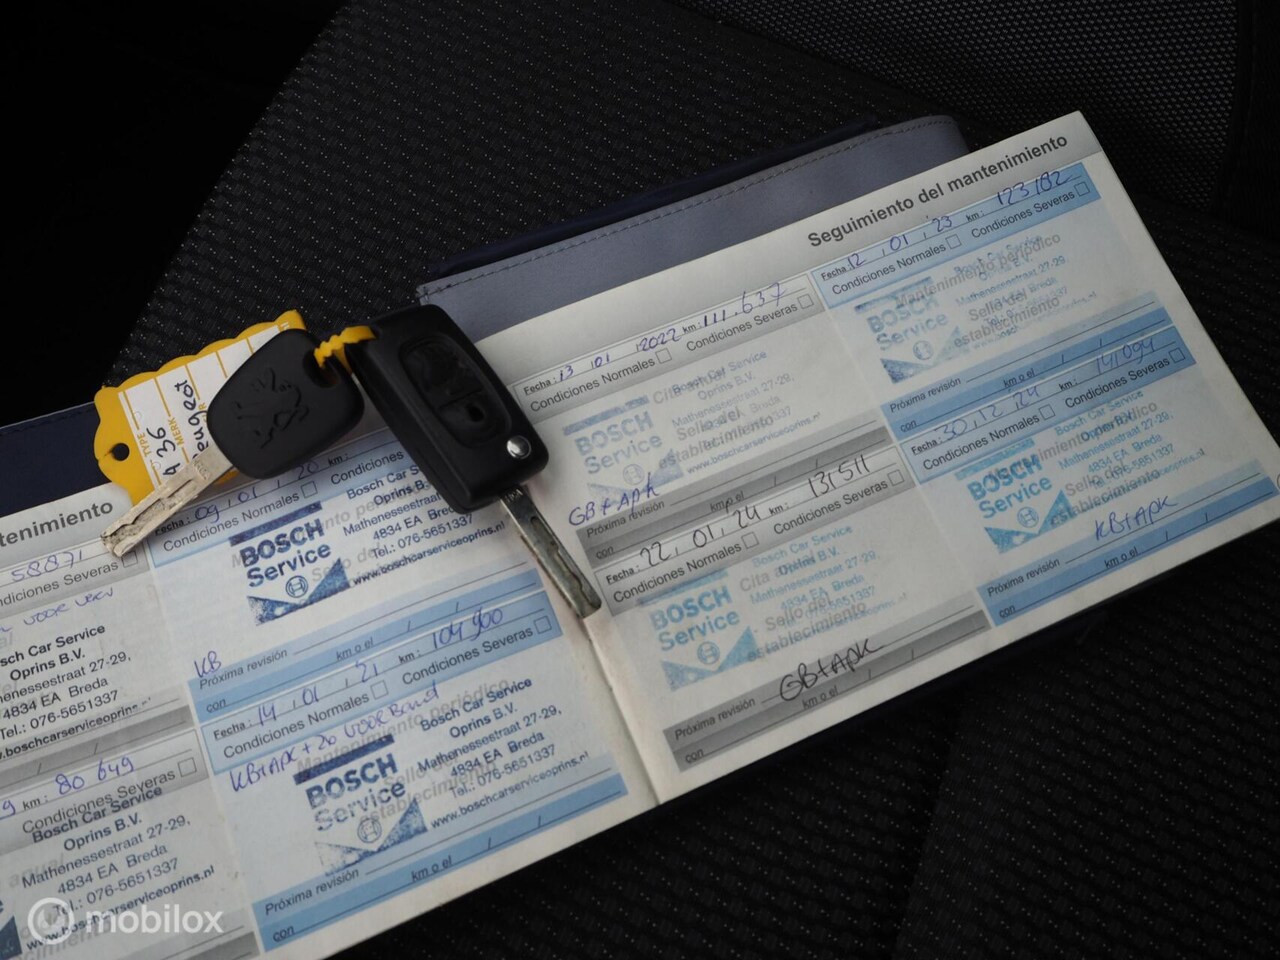 Seguimiento del mantenimiento
tenimiento
58871
diciones Severas
voor
Bosch Car Service
Oprins B.V.
Mathenessestraat 27-29,
4834 EA Breda
Tel.: 076-5651337
www.boschcarserviceoprins.nl
9 km: 80 649
Condiciones Severas
Bosch Car Service
Oprins B.V.
Mathenessestraat 27-29,
4834 EA Breda
Tel.: 076-5651337
www.boschcarserviceoprins.nl
TYPE
MERK
Peugeot
Fecha: 09, 01, 20 km:
Condiciones Normales Condiciones
BOSCH
Service
Bosch Car Service
Oprins B.V.
Mathenessestraat 27-29,
4834 EA Breda
Tel.: 076-5651337
www.boschcarserviceoprins.nl
KB
Próxima revisión km o el / /
con
Fecha: 14, 01, 21 km: 104 900
Condiciones Normales Condiciones Severas
KB+APK + voor Band
Mantenimiento periódico
BOSCH
Service
Sello del
establecimiento
Bosch Car Service
Oprins B.V.
Mathenessestraat 27-29,
4834 EA Breda
Tel.: 076-5651337
www.boschcarserviceoprins.nl
Próxima revisión km o el / /
con
Fecha: 13, 01, 2022 km: 111.637
Condiciones Normales Condiciones Severas
BOSCH
Service
Cita anual
Sello del
establecimiento
Bosch Car Service
Mathenessestraat 27-29,
Breda
www.boschcarservice
GB+APK
Próxima revisión km o el / /
con
Fecha: 22, 01, 24 km: 131511
Condiciones Normales Condiciones Severas
BOSCH
Service
Cita anual
Sello del
establecimiento
Bosch Car Service
Oprins B.V.
Mathenessestraat 27-29,
4834 EA Breda
GB+APK
Próxima revisión km o el / /
con
Fecha: 12, 01, 23 km: 123102
Condiciones Normales Condiciones Severas
BOSCH
Service
Mantenimiento periódico
Sello del
establecimiento
Bosch Car Service
Oprins B.V.
Mathenessestraat 27-29,
Próxima revisión km o el / /
con
Fecha: 30, 12, 24 km: 141094
Condiciones Normales Condiciones Severas
BOSCH
Service
Sello del
establecimiento
Bosch Car Service
Oprins B.V.
Mathenessestraat 27-29,
4834 EA Breda
KB+APK
Próxima revisión km o el / /
con
mobilox